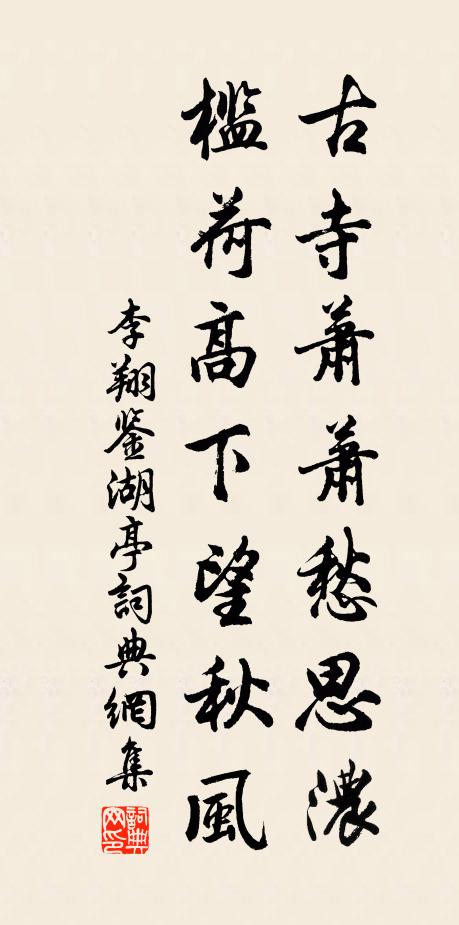 古寺蕭蕭愁思濃
檻荷高下望秋風
李翔鉴湖亭詞典網集
詞典网印